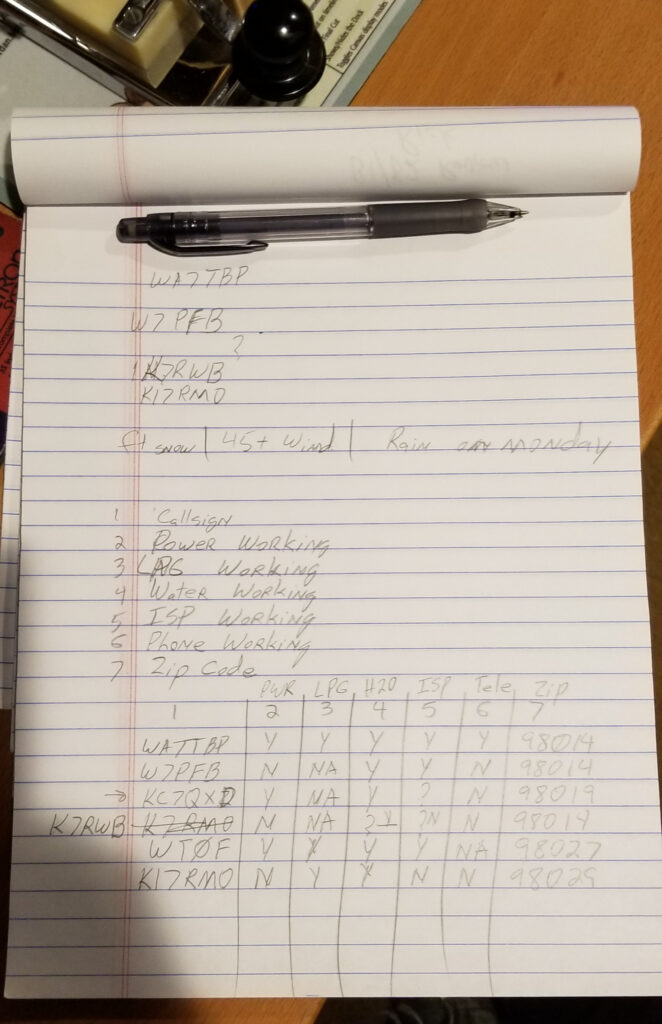 Final Cut
Shows/Hides the Dock
Toggles Canvas display modes
WA7TBP
W7PFB
?
K7RWB
KI7RMO
ft snow | 45+ Wind | Rain on MONday
1 Callsign
2 Power Working
3 LPG Working
4 Water Working
5 ISP Working
6 Phone Working
7 Zip Code
PWR LPG H20 ISP Tele Zip
1 2 3 4 5 6 7
WA7TBP Y Y Y Y Y 98014
W7PFB N NA Y Y N 98014
→ KC7QXD Y NA Y ? N 98019
K7RWB K7RMO N NA ?Y ?N N 98014
WT0F Y Y Y Y NA 98027
KI7RMO N Y Y N N 98029